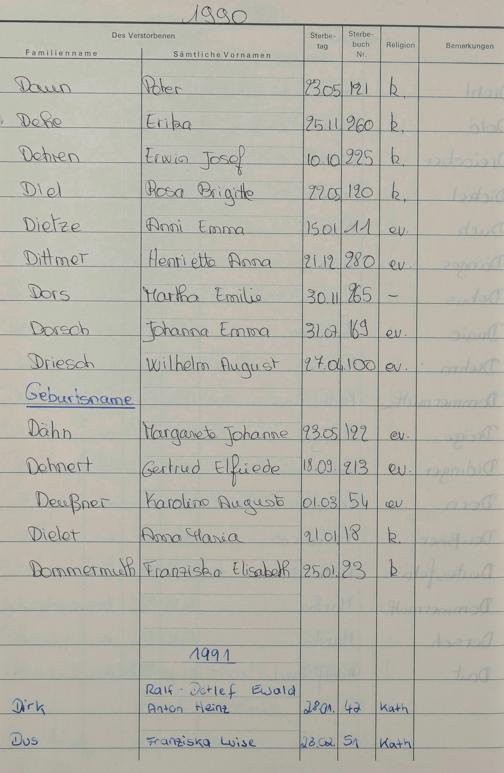 1990
Des Verstorbenen Sterbe- Sterbe- Religion Bemerkungen
Familienname Sämtliche Vornamen tag buch Nr.
Daun Peter 23.05 121 k.
Erika 25.11 260 k.
Dehren Erwin Josef 10.10 225 k.
Diel Rosa Brigitte 22.05 120 k.
Dietze Anni Emma 15.01 11 ev.
Dittmer Henriette Anna 21.12 280 ev.
Dors Martha Emilie 30.11 265 –
Dorsch Johanna Emma 31.07 169 ev.
Driesch Wilhelm August 27.04 100 ev.
Geburtsname
Dähn Margarete Johanne 23.05 122 ev.
Dehnert Gertrud Elfriede 18.09. 213 ev.
Deußner Karoline Auguste 01.03 54 ev
Anna Maria 21.01 18 k.
Dommermuth Franziska Elisabeth 25.01. 23 k
1991
Ralf-Detlef Ewald
Dirk Anton Heinz 28.01. 42 Kath
Dus Franziska Luise 23.02. 51 Kath